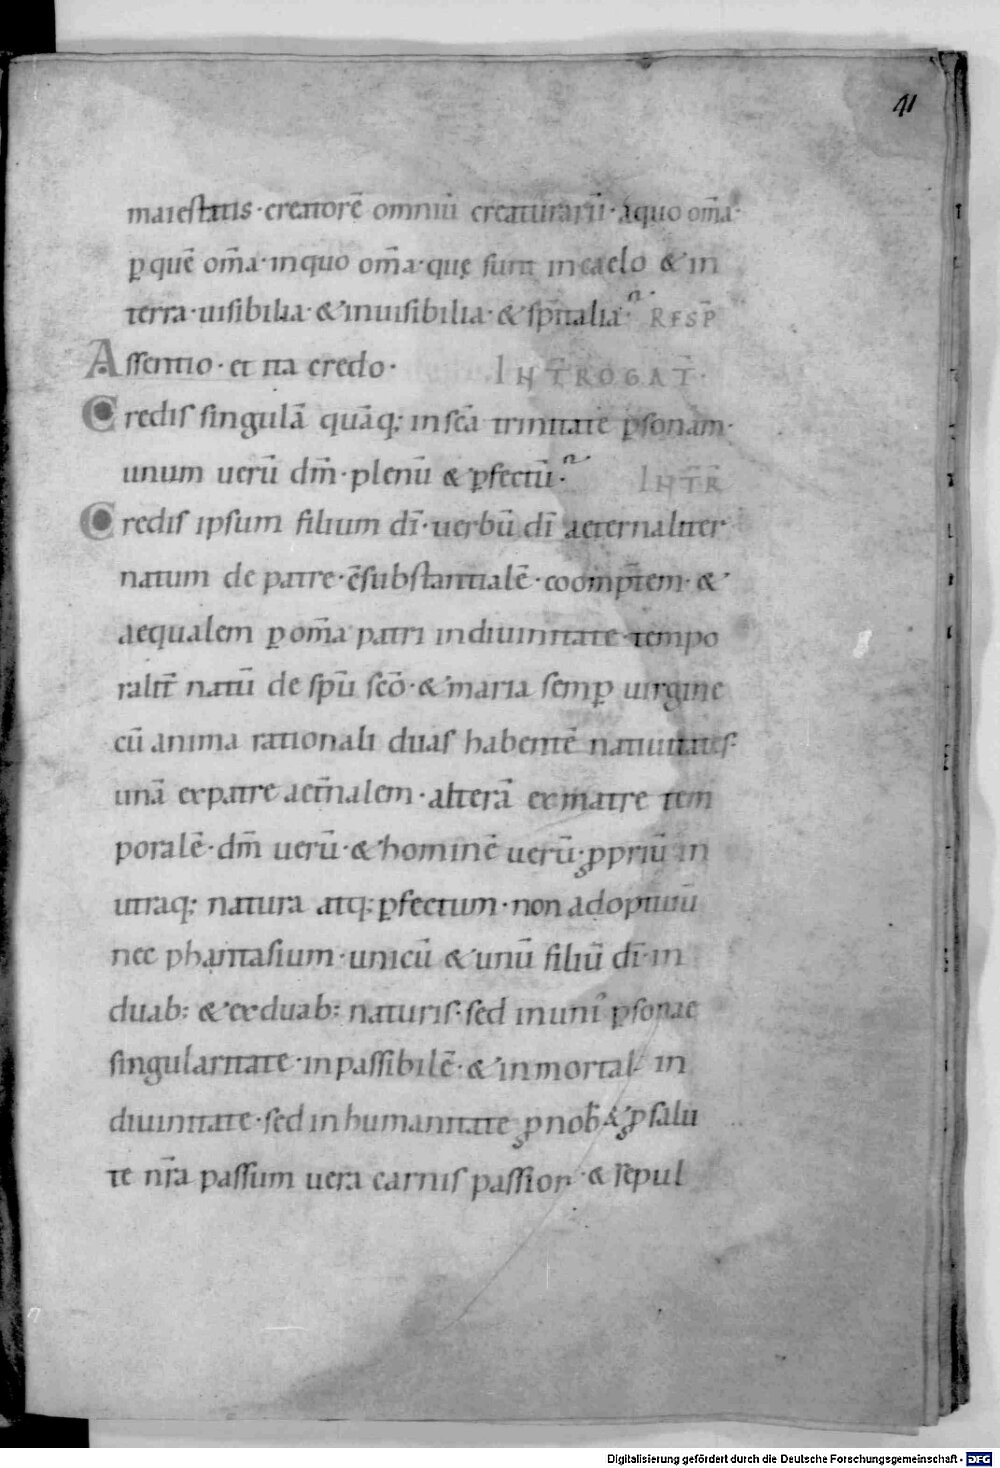 41
maiestatis · creatorē omniū creaturarū · aquo om̄a ·
ꝑ quē om̄a · inquo om̄a · quę sunt incaelo & in
terra · uisibilia · & inuisibilia · & sp̄italia · RESP̄
Assentio · et ita credo · INTROGAT̄ ·
Credis singulā quāq; in sc̄a trinitate ꝑsonam ·
unum uerū dm̄ · plenū & ꝑfectū · INTR̄
Credis ipsum filium dī · uerbū dī aeternaliter
natum de patre · c̄substantialē · coomp̄tem · &
aequalem ꝑ om̄a patri indiuinitate · tempo
ralit̄ natū de sp̄u sc̄o · & maria semꝑ uirgine
cū anima rationali duas habentē natiuitates ·
unā expatre aet̄nalem · alterā ex matre tem
poralē · dm̄ uerū · & hominē uerū · ꝓpriū in
utraq; natura atq; ꝑfectum · non adoptiuū
nec phantasium · unicū & unū filiū dī · in
duab: & exduab: naturis · sed inunī ꝑsonae
singularitate · inpassibilē · & inmortal in
diuinitate · sed inhumanitate ꝓ nob̄ & ꝓ salu
te nr̄a passum uera carnis passion · & sepul
Digitalisierung gefördert durch die Deutsche Forschungsgemeinschaft - DFG